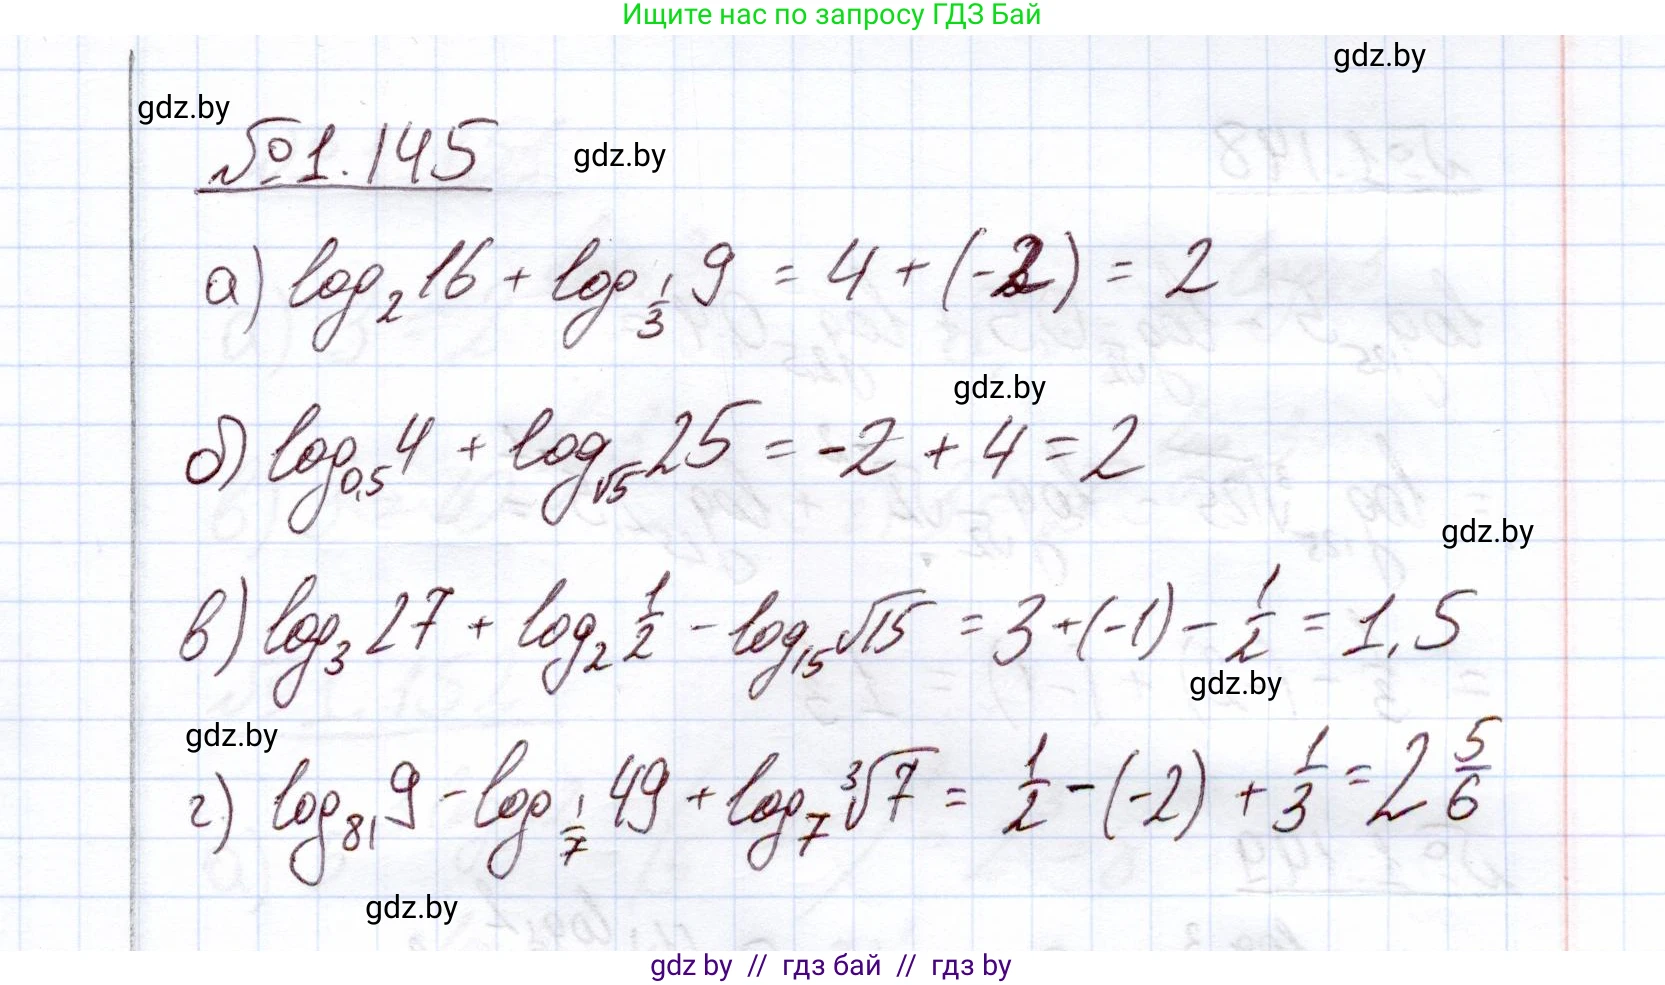 Ищите нас по запросу ГДЗ Бай
gdz.by
gdz.by
№1.145
gdz.by
а) log₂16 + log_{1/3} 9 = 4 + (-2) = 2
gdz.by
б) log_{0,5} 4 + log_{√5} 25 = -2 + 4 = 2
gdz.by
в) log₃27 + log₂ 1/2 - log₁₅√15 = 3 + (-1) - 1/2 = 1,5
gdz.by
gdz.by
г) log₈₁9 - log_{1/7} 49 + log₇ ∛7 = 1/2 - (-2) + 1/3 = 2 5/6
gdz.by
gdz by // гдз бай // гдз by